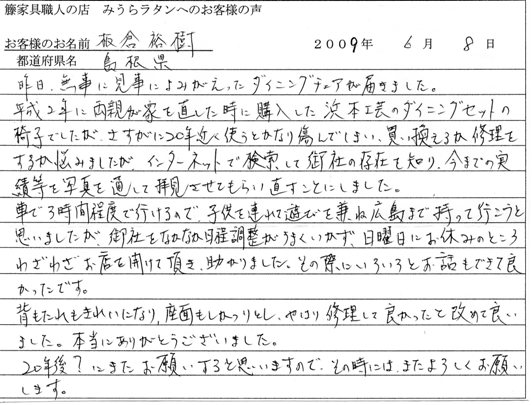 籐家具職人の店 みうらラタンへのお客様の声
お客様のお名前 板倉裕樹 2009年 6月 8日
都道府県名 島根県
昨日、無事に見事によみがえったダイニングチェアが届きました。
平成2年に両親が家を直した時に購入した浜本工芸のダイニングセットの
椅子でしたが、さすがに20年近く使うとかなり傷んでしまい、買い換えるか修理を
するか悩みましたが、インターネットで検索して御社の存在を知り、今までの実
績等を写真を通して拝見させてもらい直すことにしました。
車で3時間程度で行けるので、子供を連れて遊びを兼ね広島まで持って行こうと
思いましたが、御社となかなか日程調整がうまくいかず、日曜日にお休みのところ
わざわざお店を開けて頂き、助かりました。その際にいろいろとお話もできて良
かったです。
背もたれもきれいになり、座面もしっかりとし、やはり修理して良かったと改めて良い
ました。本当にありがとうございました。
20年後?にまたお願いすると思いますので、その時には、またよろしくお願い
します。